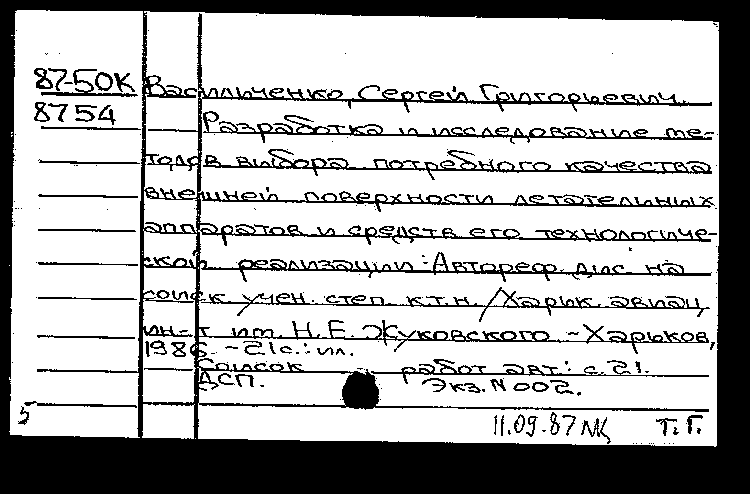 87-50К Васильченко, Сергей Григорьевич.
8754 Разработка и исследование ме-
тодов выбора потребного качества
внешней поверхности летательных
аппаратов и средств его технологиче-
ской реализации: Автореф. дис. на
соиск. учен. степ. к.т.н. / Харьк. авиац.
ин-т им. Н.Е. Жуковского. - Харьков,
1986. - 21 с.: ил.
Список работ авт.: с. 21.
ДСП. Экз. N 002.
5
11.09.87 Т.Г.